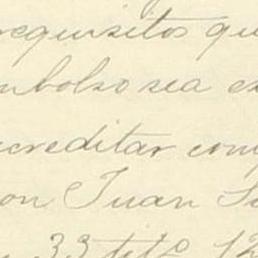 requisitos qu
mbolso sea ex
acreditar com
on Juan S
33 titº 12